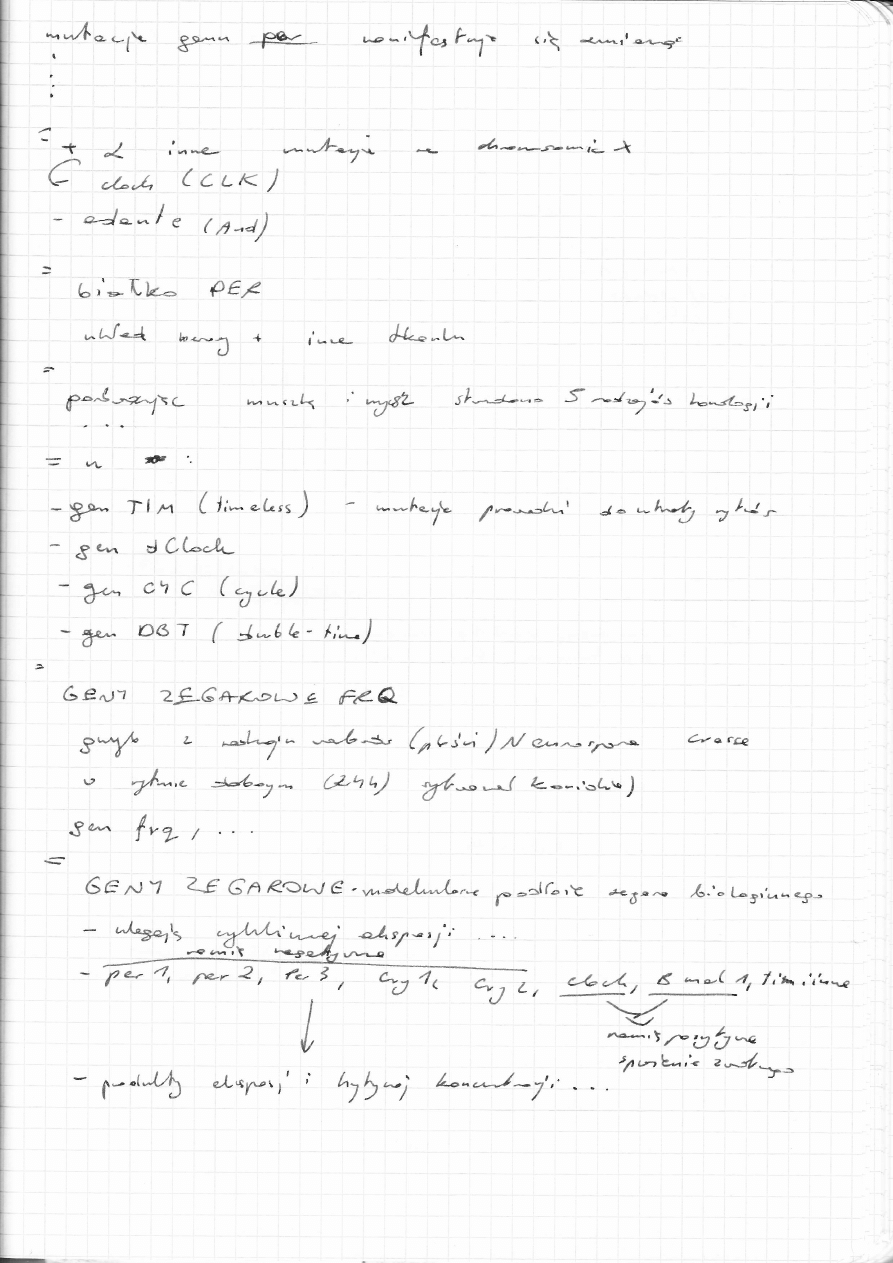 mutacje genu per manifestuje się zmianą
⋮
= + 2 inne mutacje na chromosomie X
clock (CLK)
- andante (And)
=
białko PER
układ nerwowy + inne tkanki
=
porównując muszkę i mysz 5 rodzajów homologii
...
= u :
- gen TIM (timeless) - mutacje prowadzi do utraty rytmów
- gen dClock
- gen CYC (cycle)
- gen DBT (double-time)
=
GENY ZEGAROWE FRQ
grzyb z rodzaju (pleśni) Neurospora crassa
w rytmie dobowym (24h) konidia)
gen frq, ...
=
GENY ZEGAROWE - molekularne podłoże zegara biologicznego
- ulegają cyklicznej ekspresji ....
ramię negatywne
- per 1, per 2, Per 3, Cry 1, Cry 2, Clock, B mal 1, tim i inne
ramię pozytywne
sprzężenia zwrotnego
- produkty ekspresji i krytycznej koncentracji ...